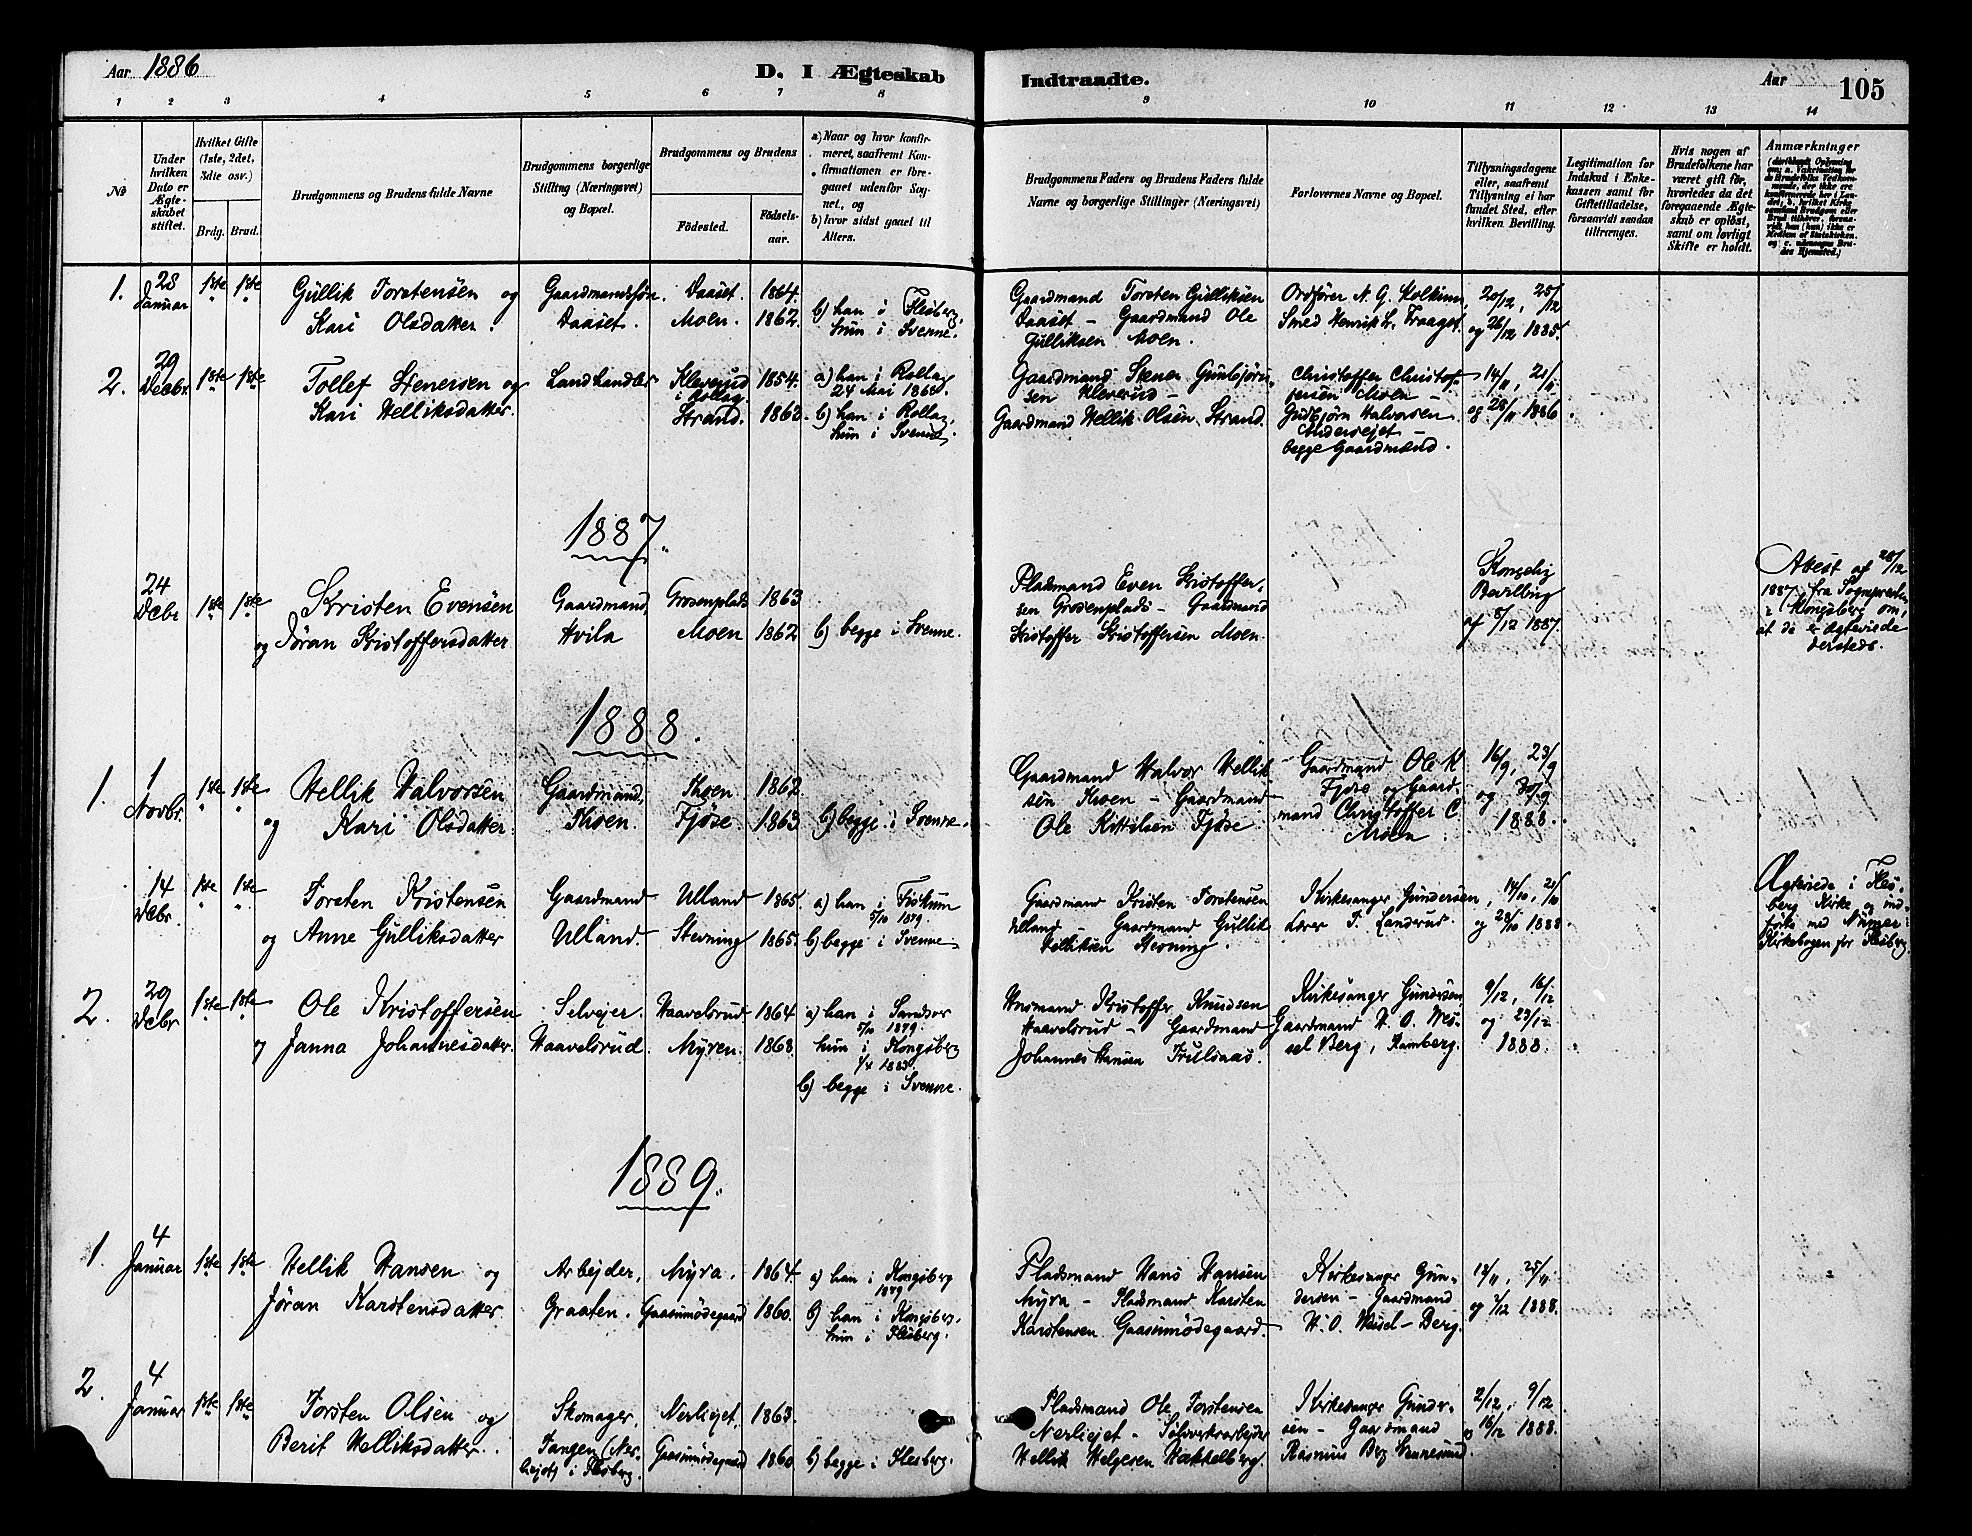 Aar 1886
D. I Ægteskab Indtraadte.
Aar
105
1 2 3 4 5 6 7 8 9 10 11 12 13 14
No
Under hvilken Dato er Ægteskabet stiftet.
Hvilket Gifte (1ste, 2det, 3die osv.)
Brdg. Brud.
Brudgommens og Brudens fulde Navne
Brudgommens borgerlige Stilling (Næringsvei) og Bopæl.
Brudgommens og Brudens
Fødested.
Fødselsaar.
a) Naar og hvor konfirmeret, saafremt Konfirmationen er foregaaet udenfor Sognet, og
b) hvor sidst gaaet til Alters.
Brudgommens Faders og Brudens Faders fulde Navne og borgerlige Stillinger (Næringsvei)
Forlovernes Navne og Bopæl.
Tillysningsdagene eller, saafremt Tillysning ei har fundet Sted, efter hvilken Bevilling.
Legitimation for Indskud i Enkekassen samt for Giftetilladelse, forsaavidt saadan tiltrænges.
Hvis nogen af Brudefolkene har været gift før, hvorledes da det foregaaende Ægteskab er opløst, samt om lovligt Skifte er holdt.
Anmærkninger
1. 28 Januar 1ste 1ste
Gullik Torstensen og
Kari Olsdatter.
Gaardmandssøn
Daaset.
Daaset. 1864.
Moen. 1862.
b) han i Flesberg,
hun i Svenne.
Gaardmand Torsten Gulliksen
Daaset – Gaardmand Ole
Gulliksen Moen.
Ordfører N. G.
Smed Henrik
20/12, 25/12
og 26/12 1885.
2. 29 Decbr. 1ste 1ste
Tollef Stenersen og
Kari Helliksdatter.
Landhandler
Kleverud i Rollag 1854.
Strand. 1863.
a) han i Rollag
24 Mai 1868.
b) han i Rollag,
hun i Svenne.
Gaardmand Stener Gunbjørn-
sen Kleverud –
Gaardmand Hellik Olsen Strand.
Christoffer Christof-
fersen Moen –
Gudbjørn Halvorsen
begge Gaardmænd.
14/11, 21/11
og 28/11 1886.
1887.
24 Debr 1ste 1ste
Kristen Evensen
og Jøran Kristoffersdatter
Gaardmand,
Hvila
Grosenplads 1863
Moen 1862
b) begge i Svenne.
Pladsmand Even Kristoffer-
sen Grosenplads – Gaardmand
Kristoffer Kristoffersen Moen.
Kongelig
Bevilling
af 8/12 1887.
Attest af 28/12
1887 fra Sognepresten
i Kongsberg om,
at de er ægteviede
dersteds.
1888.
1. 1 Novbr. 1ste 1ste
Hellik Halvorsen
og Kari Olsdatter.
Gaardmand,
Moen.
Moen 1862
Fjøse. 1863
b) begge i Svenne.
Gaardmand Halvor Hellik-
sen Moen – Gaardmand
Ole Kittilsen Fjøse.
Gaardmand Ole K
Fjøse og Gaard-
mand Christoffer C.
Moen
16/9, 23/9
og 30/9
1888.
14 Debr. 1ste 1ste
Torsten Kristensen
og Anne Gulliksdatter
Gaardmand
Ulland.
Ulland 1865
Stevning 1865.
a) han i Fiskum
5/10 1879.
b) begge i Svenne.
Gaardmand Kristen Torstensen
Ulland – Gaardmand Gullik
Helliksen Stevning.
Kirkesanger Gundersen,
Lærer T. Landrud.
14/10, 21/10
og 28/10 1888.
Ægteviede i Fles-
berg Kirke og ind-
førte med Nummer i
Kirkebogen for Flesberg.
2. 29 Debr 1ste 1ste
Ole Kristoffersen
og Janna Johannesdatter.
Selveier.
Haavelsrud.
Haavelsrud 1864
Myren. 1868.
a) han i Sandsvær
5/10 1879.
hun i Kongsberg
1/4 1883.
b) begge i Svenne.
Husmand Kristoffer Knudsen
Haavelsrud – Gaardmand
Johannes Hansen Trulsaas.
Kirkesanger Gundersen,
Gaardmand H. O. Wes-
sel Berg, Ramberg.
9/12, 16/12
og 23/12
1888.
1889.
1. 4 Januar 1ste 1ste
Hellik Hansen og
Jøran Karstensdatter.
Arbejder,
Graaten.
Myra. 1864
Gaasumødegaard 1860.
a) han i Kongsberg
1879
b) han i Kongsberg.
hun i Flesberg.
Pladsmand Hans Hansen
Myra – Pladsmand Karsten
Karstensen Gaasumødegaard.
Kirkesanger Gun-
dersen – Gaardmand
H. O. Wessel-Berg.
18/11, 25/11
og 2/12 1888.
2. 4 Januar 1ste 1ste
Torsten Olsen og
Berit Helliksdatter.
Skomager,
Tangen (Ner-
liejet) i Flesberg.
Nerliejet. 1863.
Gaasumødegaard 1860
b) begge i Flesberg.
Pladsmand Ole Torstensen
Nerliejet – Sølvverksarbejder
Hellik Helgesen
Kirkesanger Gunder-
sen – Gaardmand
Rasmus Berg
2/12, 9/12
og 16/12 1888.